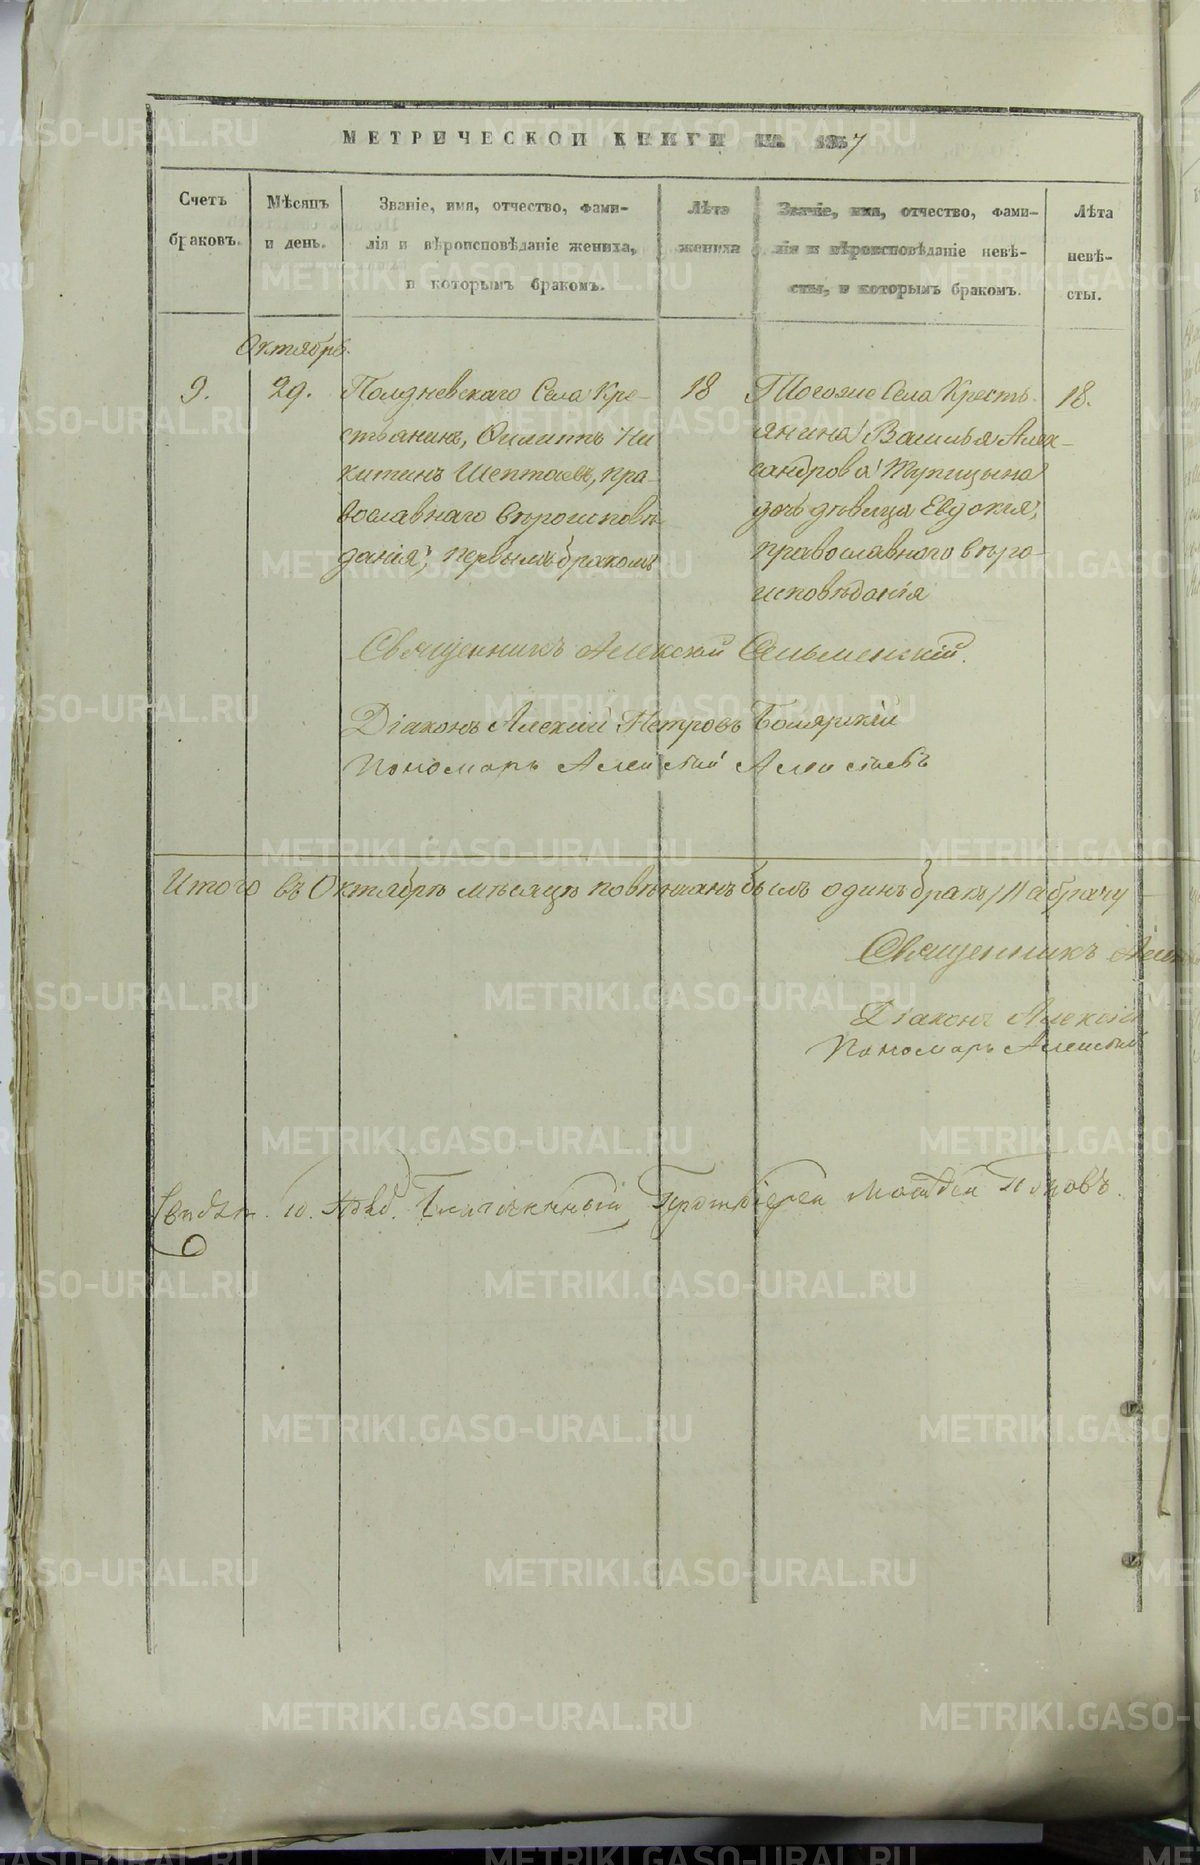 МЕТРИЧЕСКОЙ КНИГИ на 1857
Счетъ браковъ.
Мѣсяцъ и день.
Званіе, имя, отчество, фами-
лія и вѣроисповѣданіе жениха,
и которымъ бракомъ.
Лѣта жениха
Званіе, имя, отчество, фами-
лія и вѣроисповѣданіе невѣ-
сты, и которымъ бракомъ.
Лѣта
невѣ-
сты.
Октябрь.
9.
29.
Полдневскаго Села Кре-
стьянинъ, Филиппъ Ни
китинъ Шептаевъ, пра-
вославнаго вѣроисповѣ
данія, первымъ бракомъ
18
Тогоже Села Кресть-
янина Василья Алек-
сандрова Тупицына
дочь дѣвица Евдокія,
православнаго вѣро-
исповѣданія
18.
Священникъ Алексій
Діаконъ Алексій Петровъ Боярскій
Пономарь Алексій Алексѣевъ
Итого въ Октябрѣ мѣсяцѣ повѣнчанъ былъ одинъ бракъ
Священникъ
Діаконъ Алексій
Пономарь Алексій
10. Благочинный Протоіерей Матвей Поповъ.
METRIKI.GASO-URAL.RU